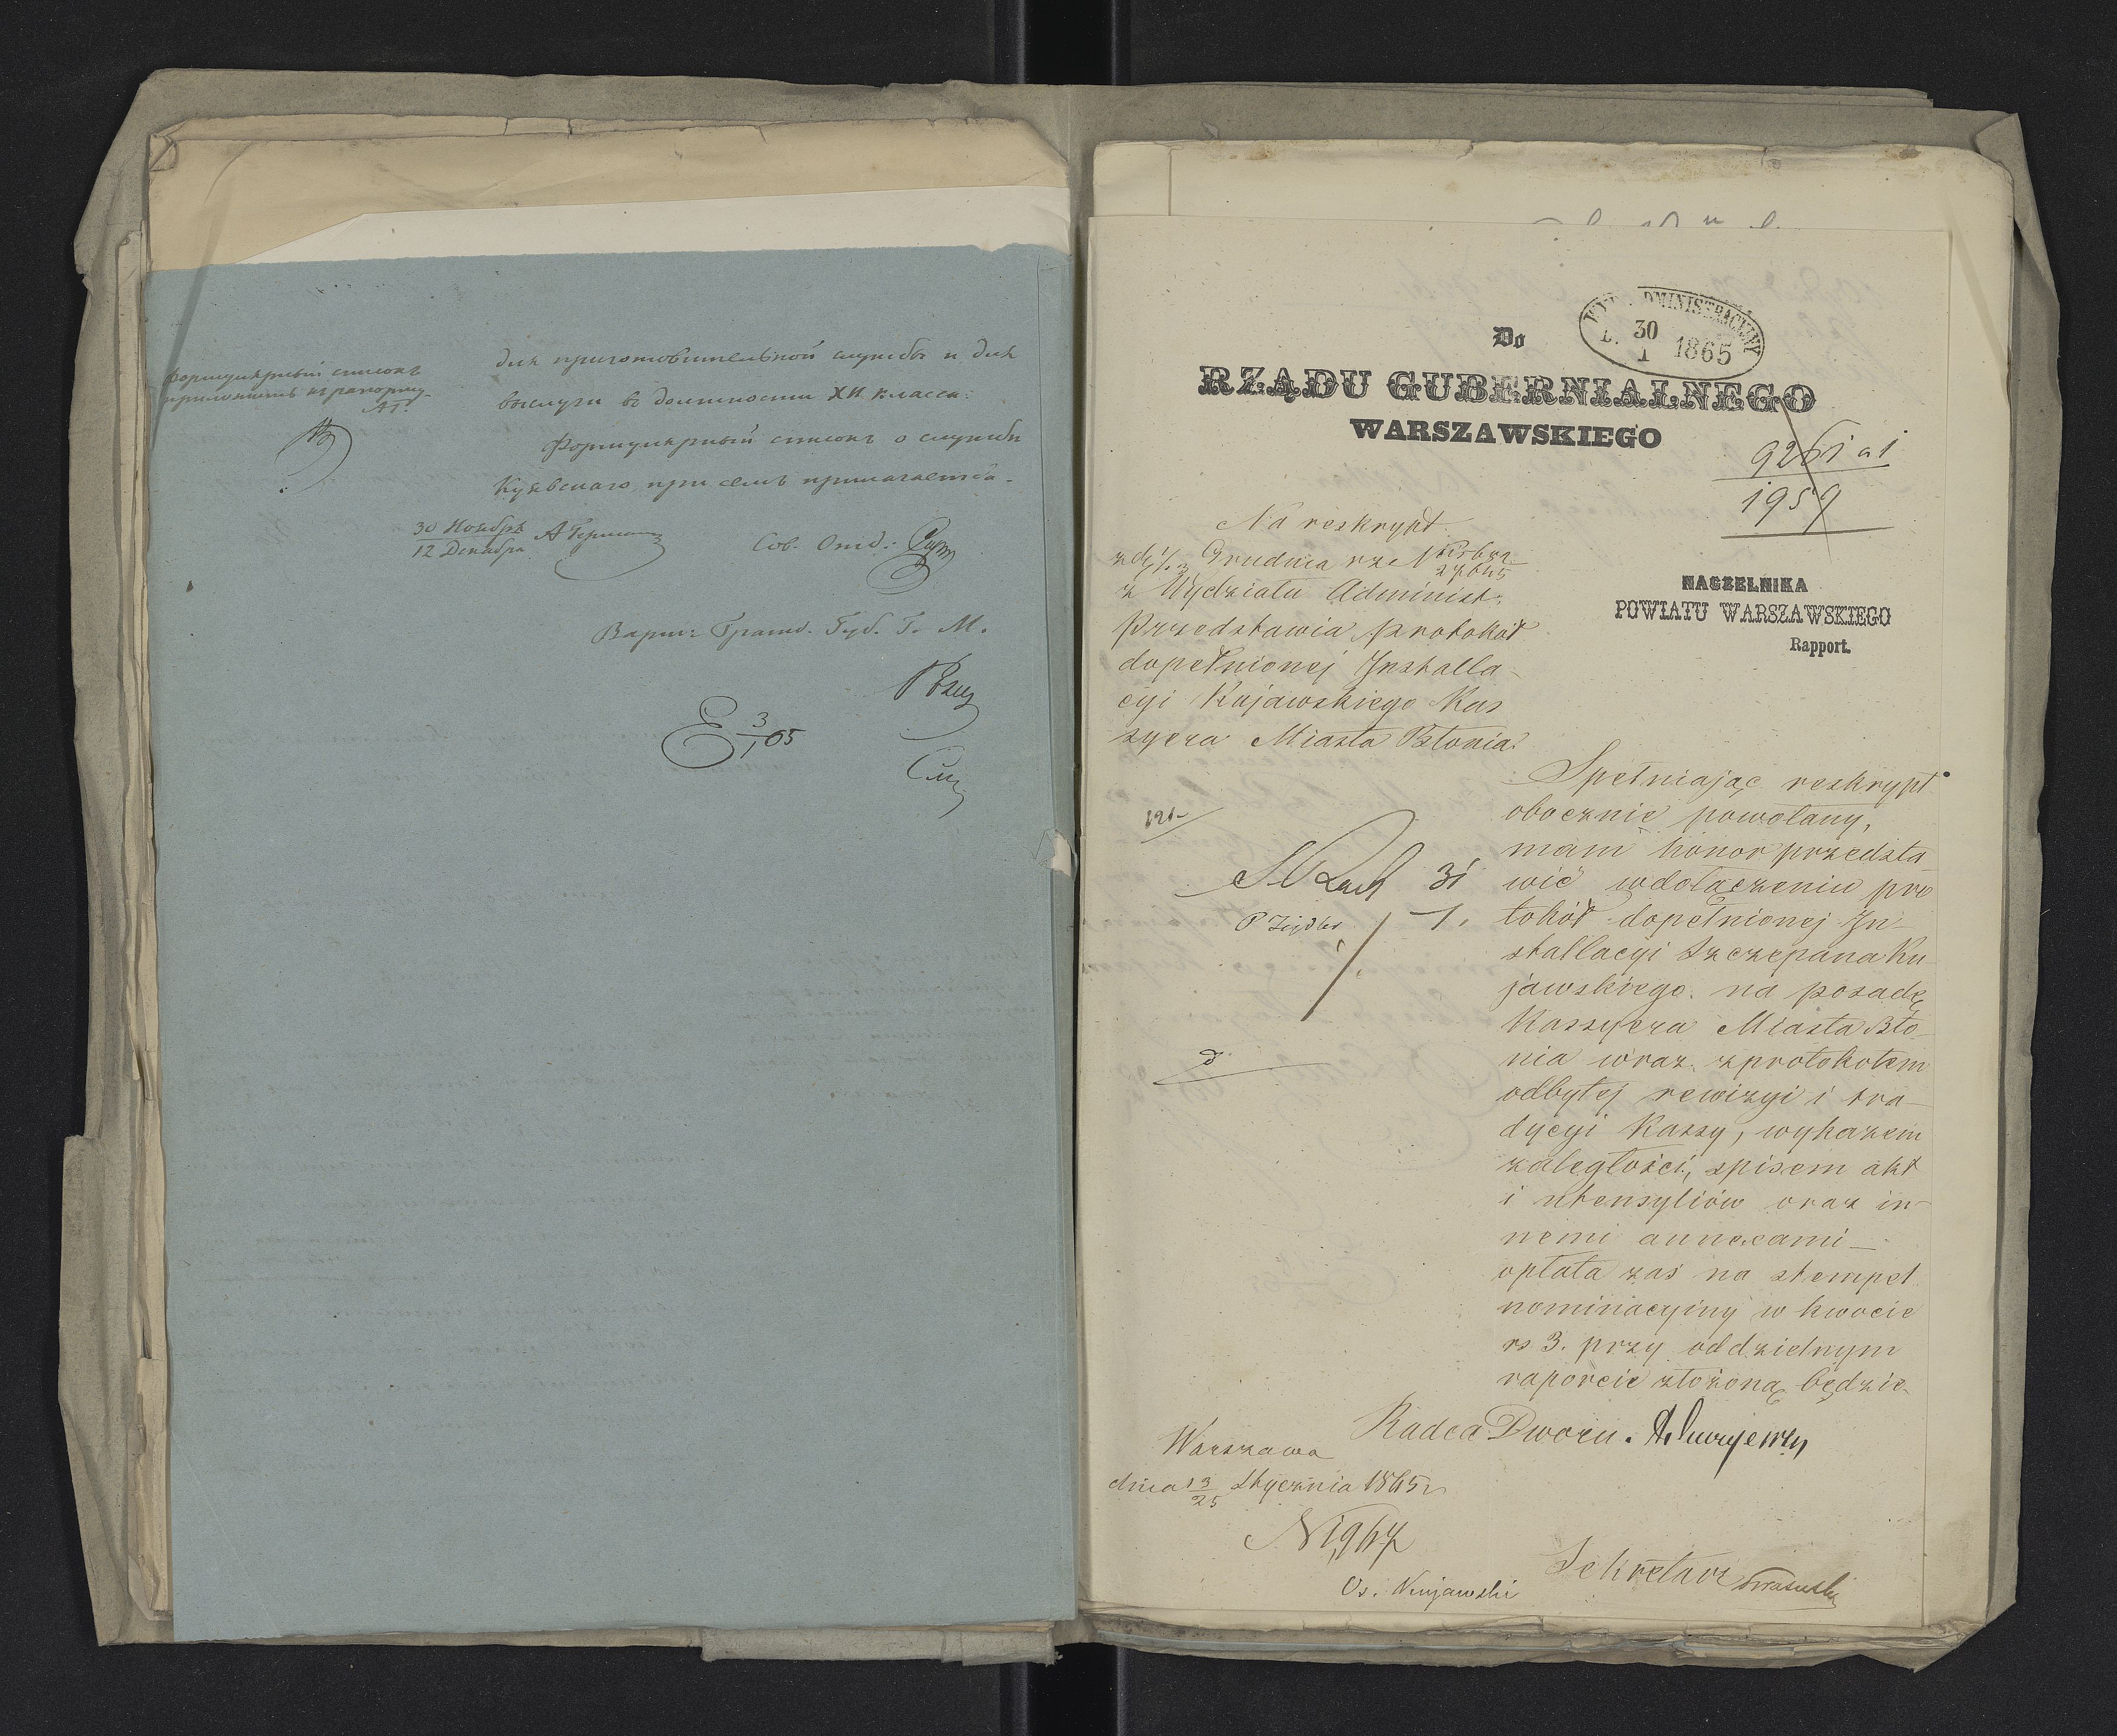 Формулярный списокъ
приложить къ рапорту
для приготовительной службы и для
выслуги въ должности XII класса.
Формулярный списокъ о службѣ
Куявскаго при семъ прилагается.
30 Ноября
12 Декабря
Сов. Отд.:
Варш: Гражд. Губ. Г. М.
3/1 65
WYD. ADMINISTRACYJNY
D. 30/1 1865
Do
RZĄDU GUBERNIALNEGO
WARSZAWSKIEGO
1959
NACZELNIKA
POWIATU WARSZAWSKIEGO
Rapport.
Na reskrypt
Grudnia rze N
27645
z Wydziału Administ:
Przedstawia protokół
dopełnionej Installa
cyi Kujawskiego Kas
syera Miasta Błonia.
Spełniając reskrypt
obocznie powołany,
mam honor przedsta
wić w dołączeniu pro
tokół dopełnionej In-
stallacyi Szczepana Ku
jawskiego na posadę
Kassyera Miasta Bło-
nia wraz z protokołem
odbytej rewizyi i tra-
dycyi Kassy, wykazem
zaległości, spisem akt
i utensyliów oraz in-
nemi annexami –
opłata zaś na stempel
nominacyjny w kwocie
rs 3. przy oddzielnym
raporcie złożoną będzie
31
1.
Radca Dworu.
Warszawa
dnia 13/25 Stycznia 1865 r
Sekretarz
Os. Kujawski